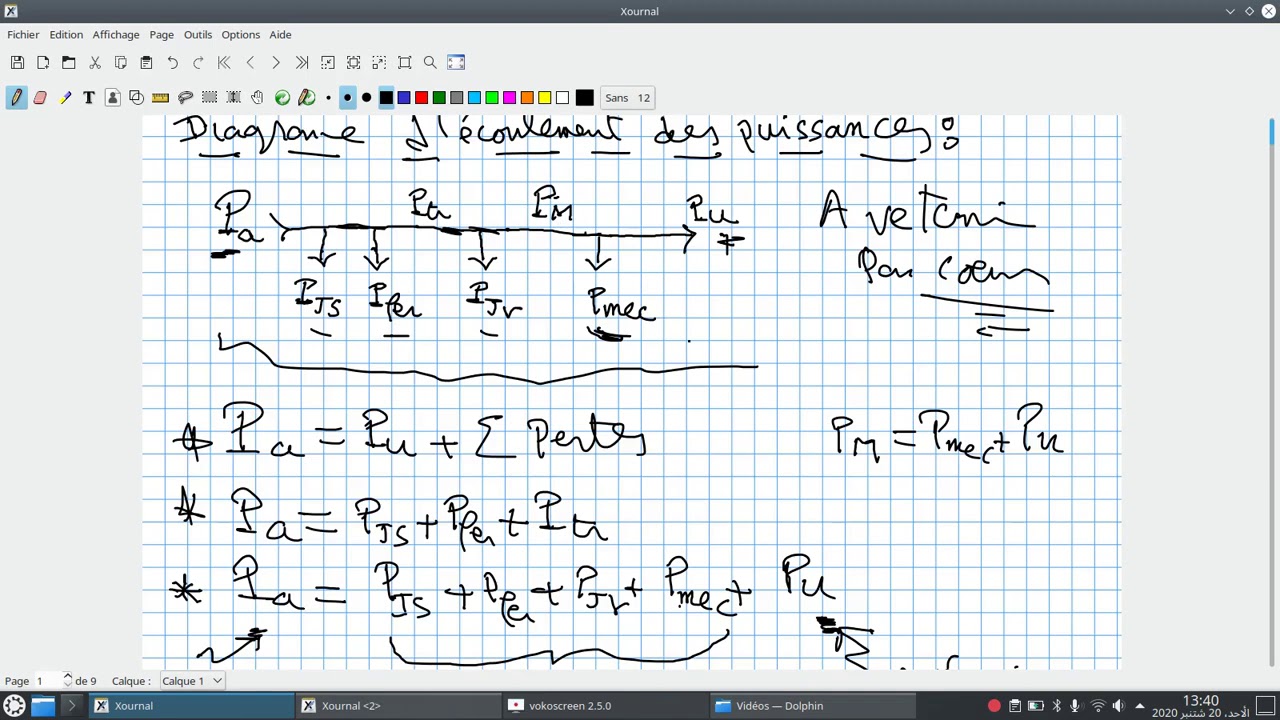 Xournal
Fichier Edition Affichage Page Outils Options Aide
T Sans 12
Diagrame d'écoulement des puissances:
Pa Ptr PM Pu
PJS Pfer PJr Pmec
A retenir
Par coeur
* Pa = Pu + Σ Pertes
PM = Pmec + Pu
* Pa = PJS + Pfer + Ptr
* Pa = PJS + Pfer + PJr + Pmec + Pu
Page 1 de 9 Calque : Calque 1
Xournal Xournal <2> vokoscreen 2.5.0 Vidéos — Dolphin
13:40
الأحد، 20 شتنبر 2020